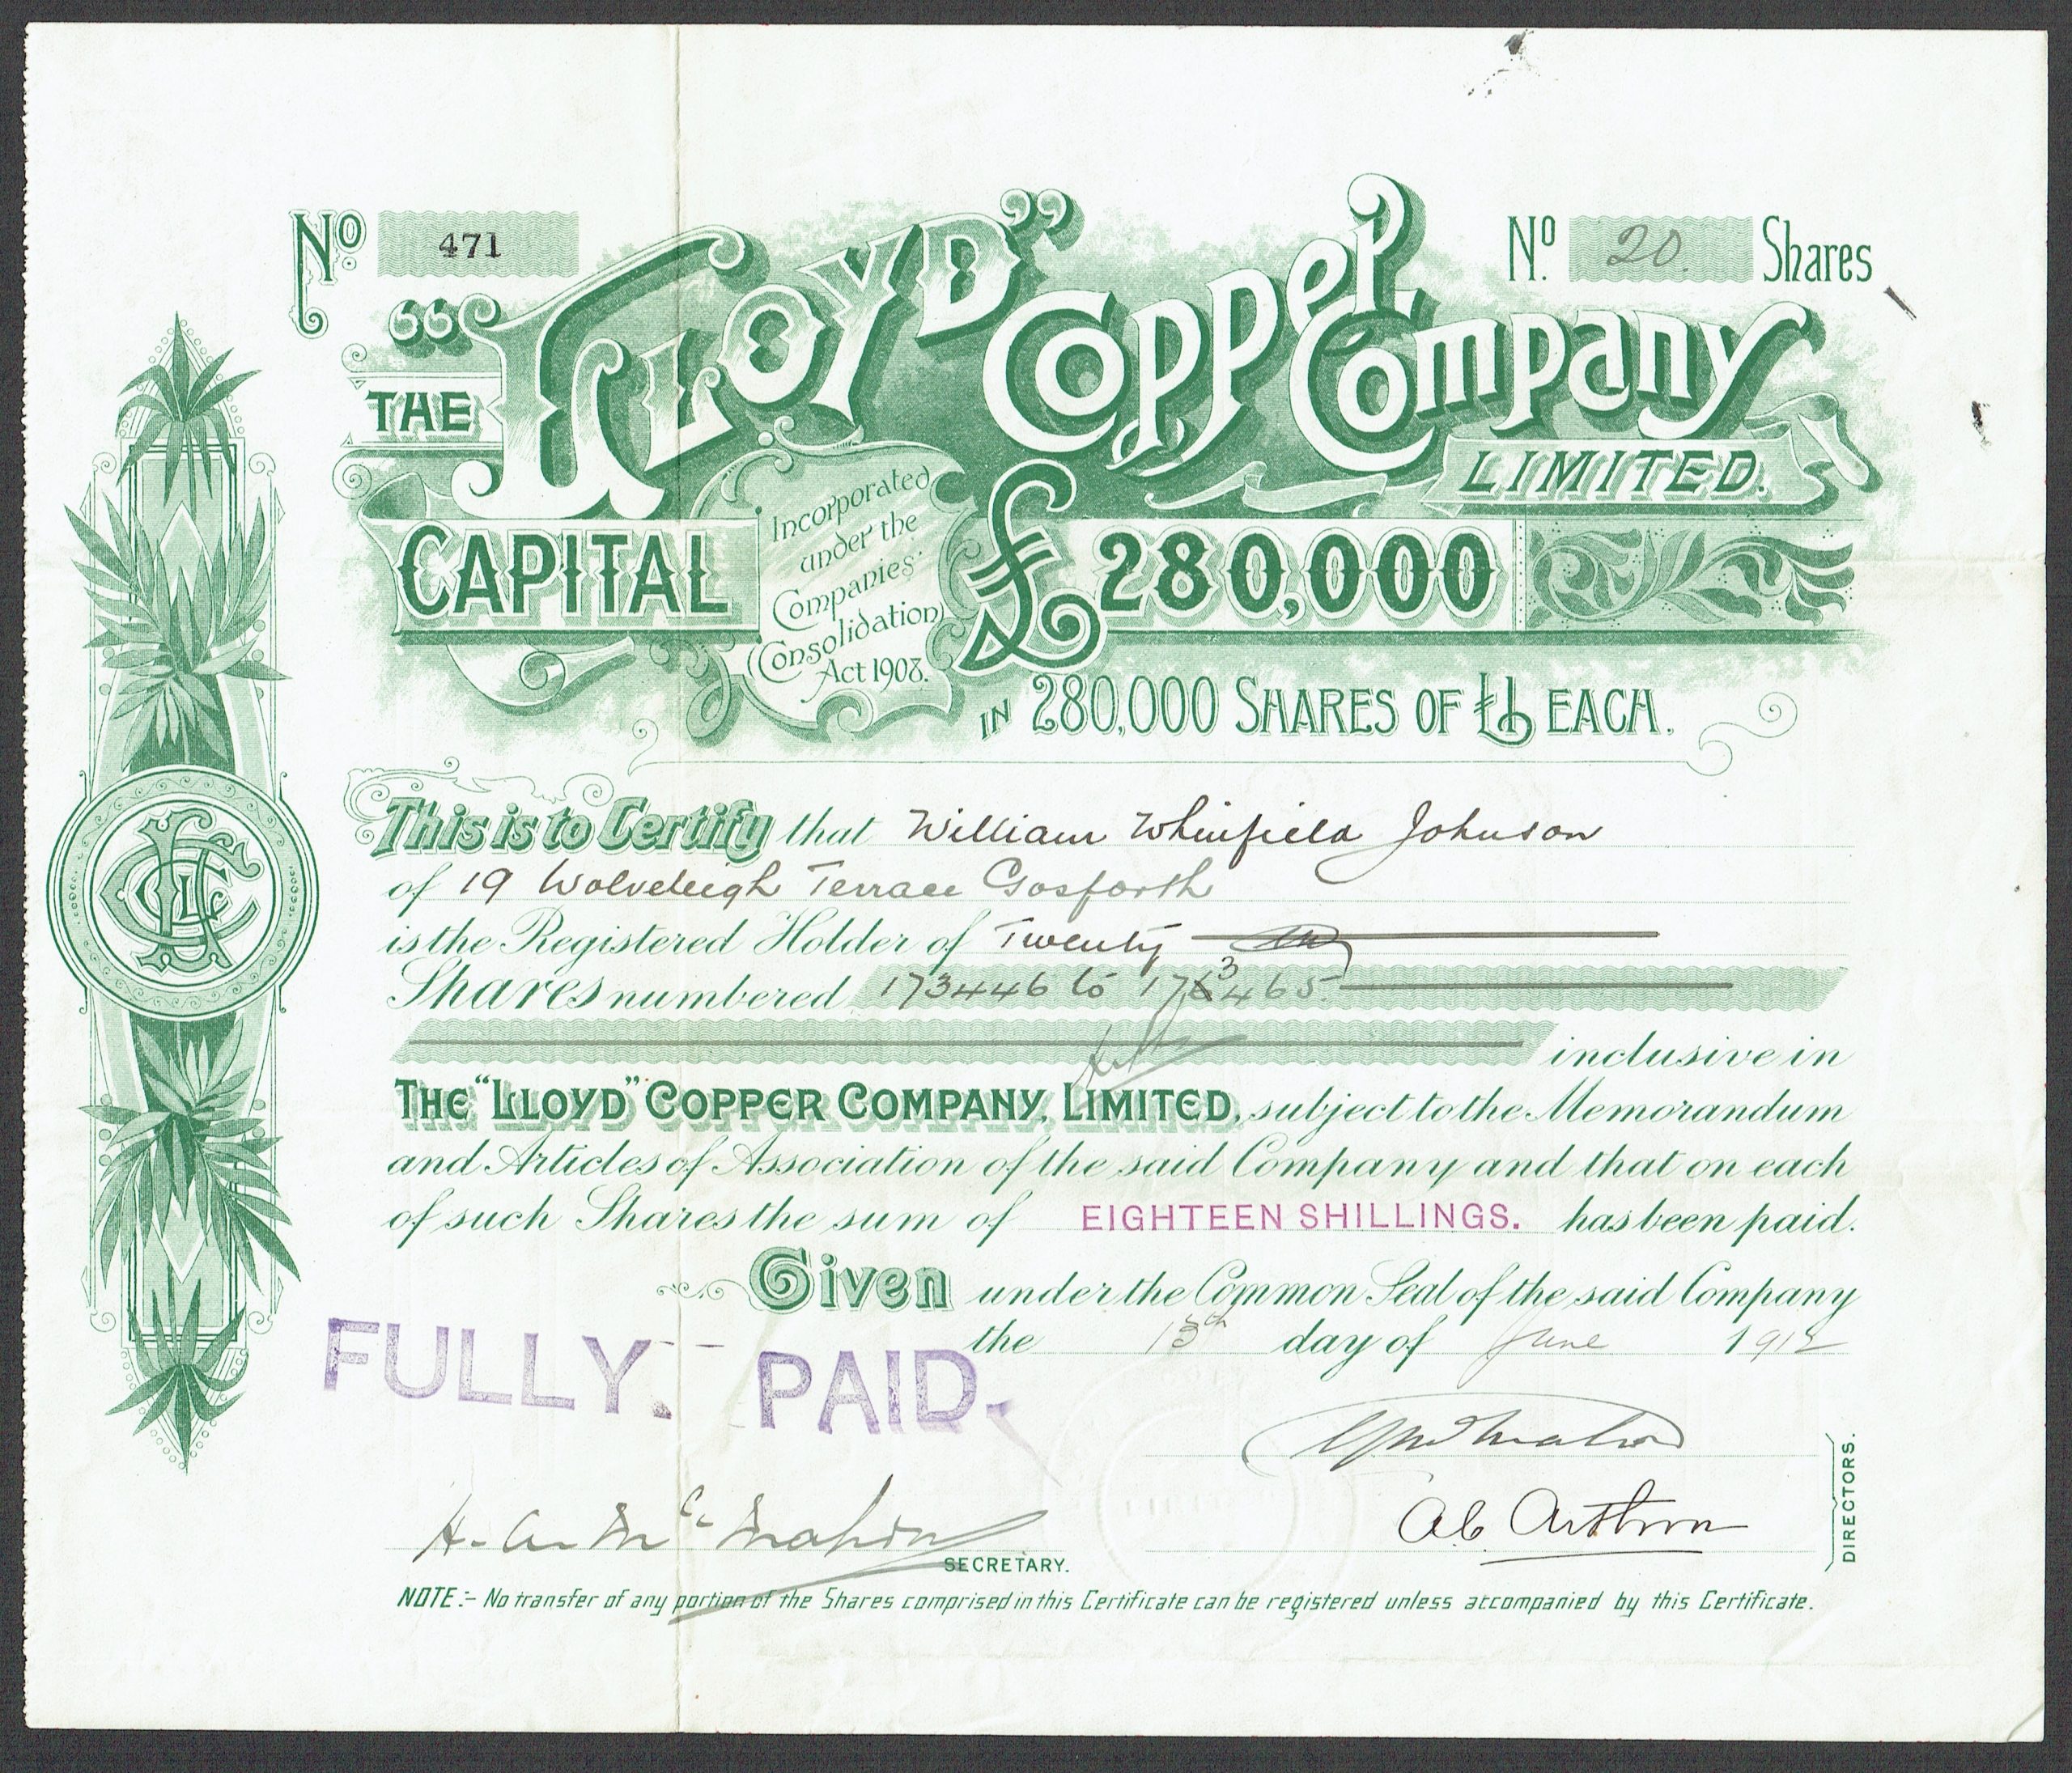 No. 471
No. 20. Shares
THE "LLOYD" COPPER COMPANY
LIMITED.
CAPITAL £280,000
Incorporated
under the
Companies'
(Consolidation)
Act 1908.
IN 280,000 SHARES OF £1 EACH.
This is to Certify that William Whinfield Johnson
of 19 Wolveleigh Terrace Gosforth
is the Registered Holder of Twenty
Shares numbered 173446 to 173465.
inclusive in
THE "LLOYD" COPPER COMPANY, LIMITED, subject to the Memorandum
and Articles of Association of the said Company and that on each
of such Shares the sum of EIGHTEEN SHILLINGS. has been paid.
Given under the Common Seal of the said Company
the 13th day of June 1912
FULLY. PAID.
DIRECTORS.
H. A. McMahon
SECRETARY.
NOTE:- No transfer of any portion of the Shares comprised in this Certificate can be registered unless accompanied by this Certificate.